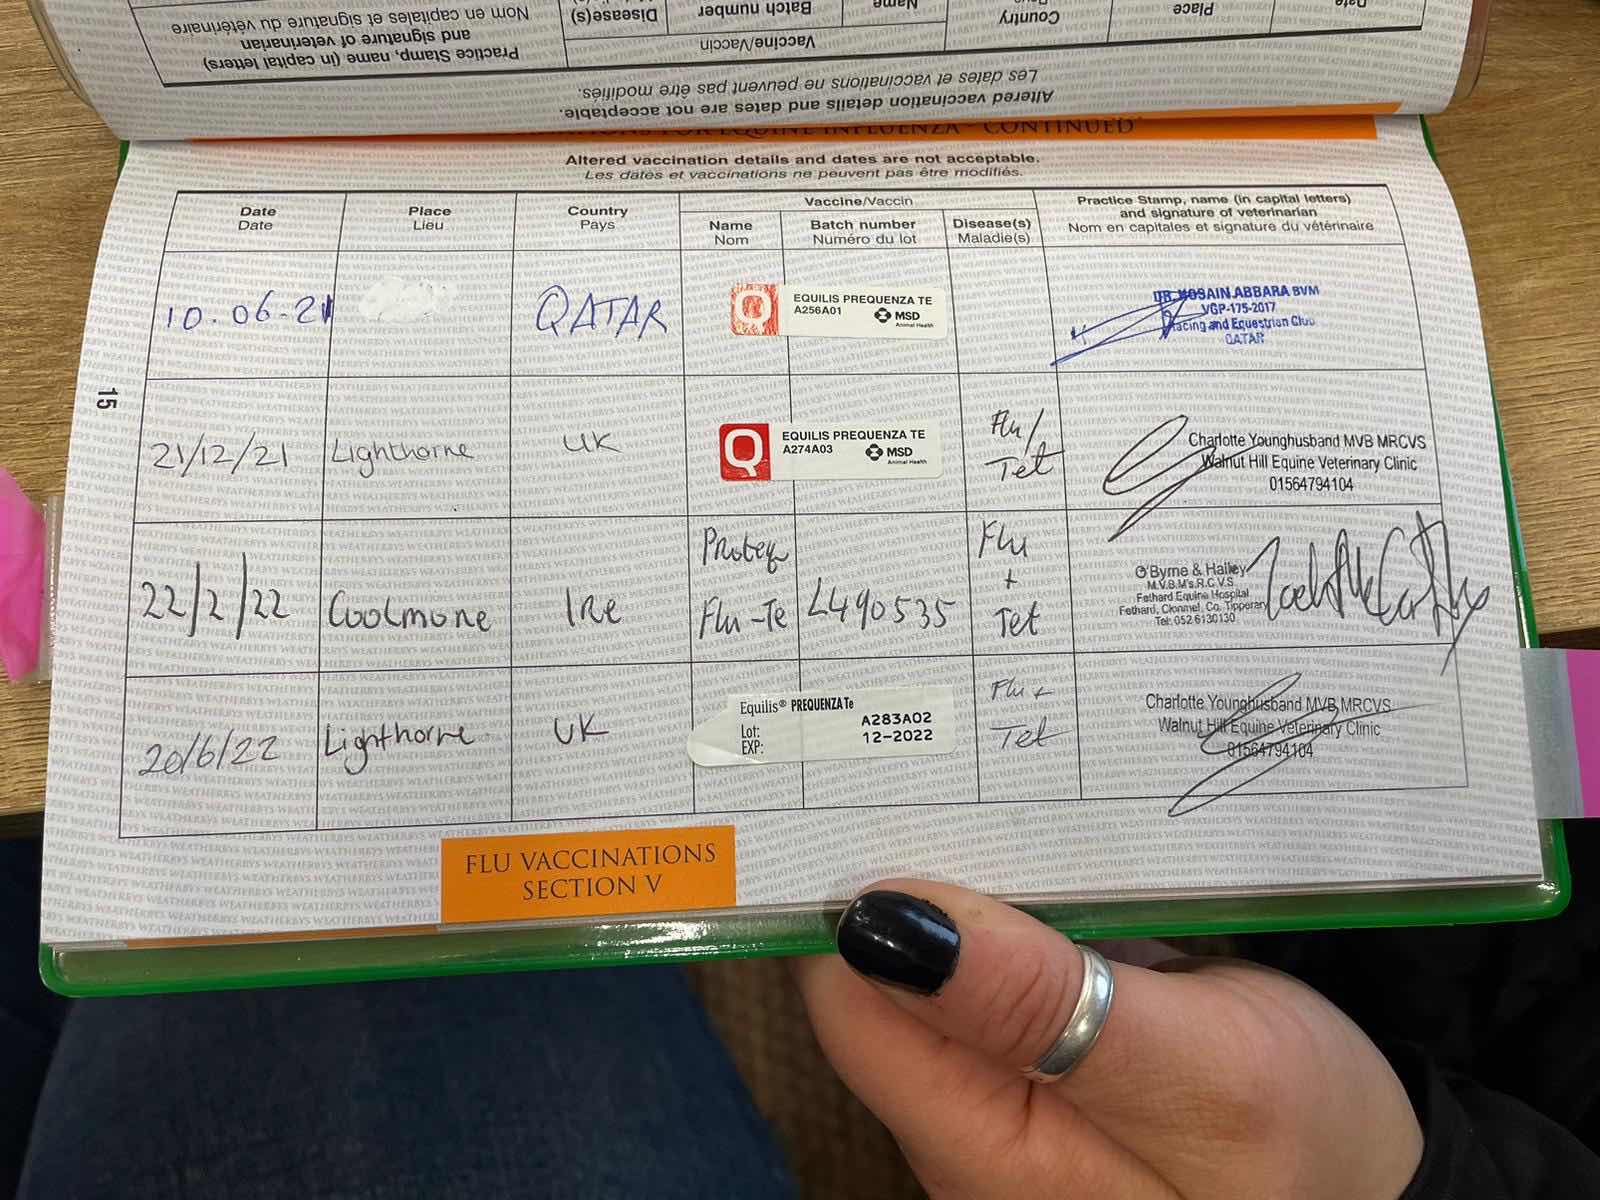 Practice Stamp, name (in capital letters)
and signature of veterinarian
Nom en capitales et signature du vétérinaire
Vaccine/Vaccin
Disease(s)
Batch number
Name
Country
Place
Date
Altered vaccination details and dates are not acceptable.
Les dates et vaccinations ne peuvent pas être modifiés.
FOR EQUINE INFLUENZA - CONTINUED
Altered vaccination details and dates are not acceptable.
Les dates et vaccinations ne peuvent pas être modifiés.
Date
Date
Place
Lieu
Country
Pays
Vaccine/Vaccin
Name
Nom
Batch number
Numéro du lot
Disease(s)
Maladie(s)
Practice Stamp, name (in capital letters)
and signature of veterinarian
Nom en capitales et signature du vétérinaire
10.06.21
QATAR
Q
EQUILIS PREQUENZA TE
A256A01
MSD
Animal Health
DR. HOSAIN ABBARA BVM
VGP-175-2017
Racing and Equestrian Club
QATAR
15
21/12/21
Lighthorne
UK
Q
EQUILIS PREQUENZA TE
A274A03
MSD
Animal Health
Flu/
Tet
Charlotte Younghusband MVB MRCVS
Walnut Hill Equine Veterinary Clinic
01564794104
22/2/22
Coolmore
IRe
Proteq
Flu-Te
L490535
Flu
+
Tet
O'Byrne & Halley
M.V.B.M's.R.C.V.S.
Fethard Equine Hospital
Fethard, Clonmel, Co. Tipperary
Tel: 052 6130130
20/6/22
Lighthorne
UK
Equilis® PREQUENZA Te
Lot: A283A02
EXP: 12-2022
Flu +
Tet
Charlotte Younghusband MVB MRCVS
Walnut Hill Equine Veterinary Clinic
01564794104
FLU VACCINATIONS
SECTION V
WEATHERBYS